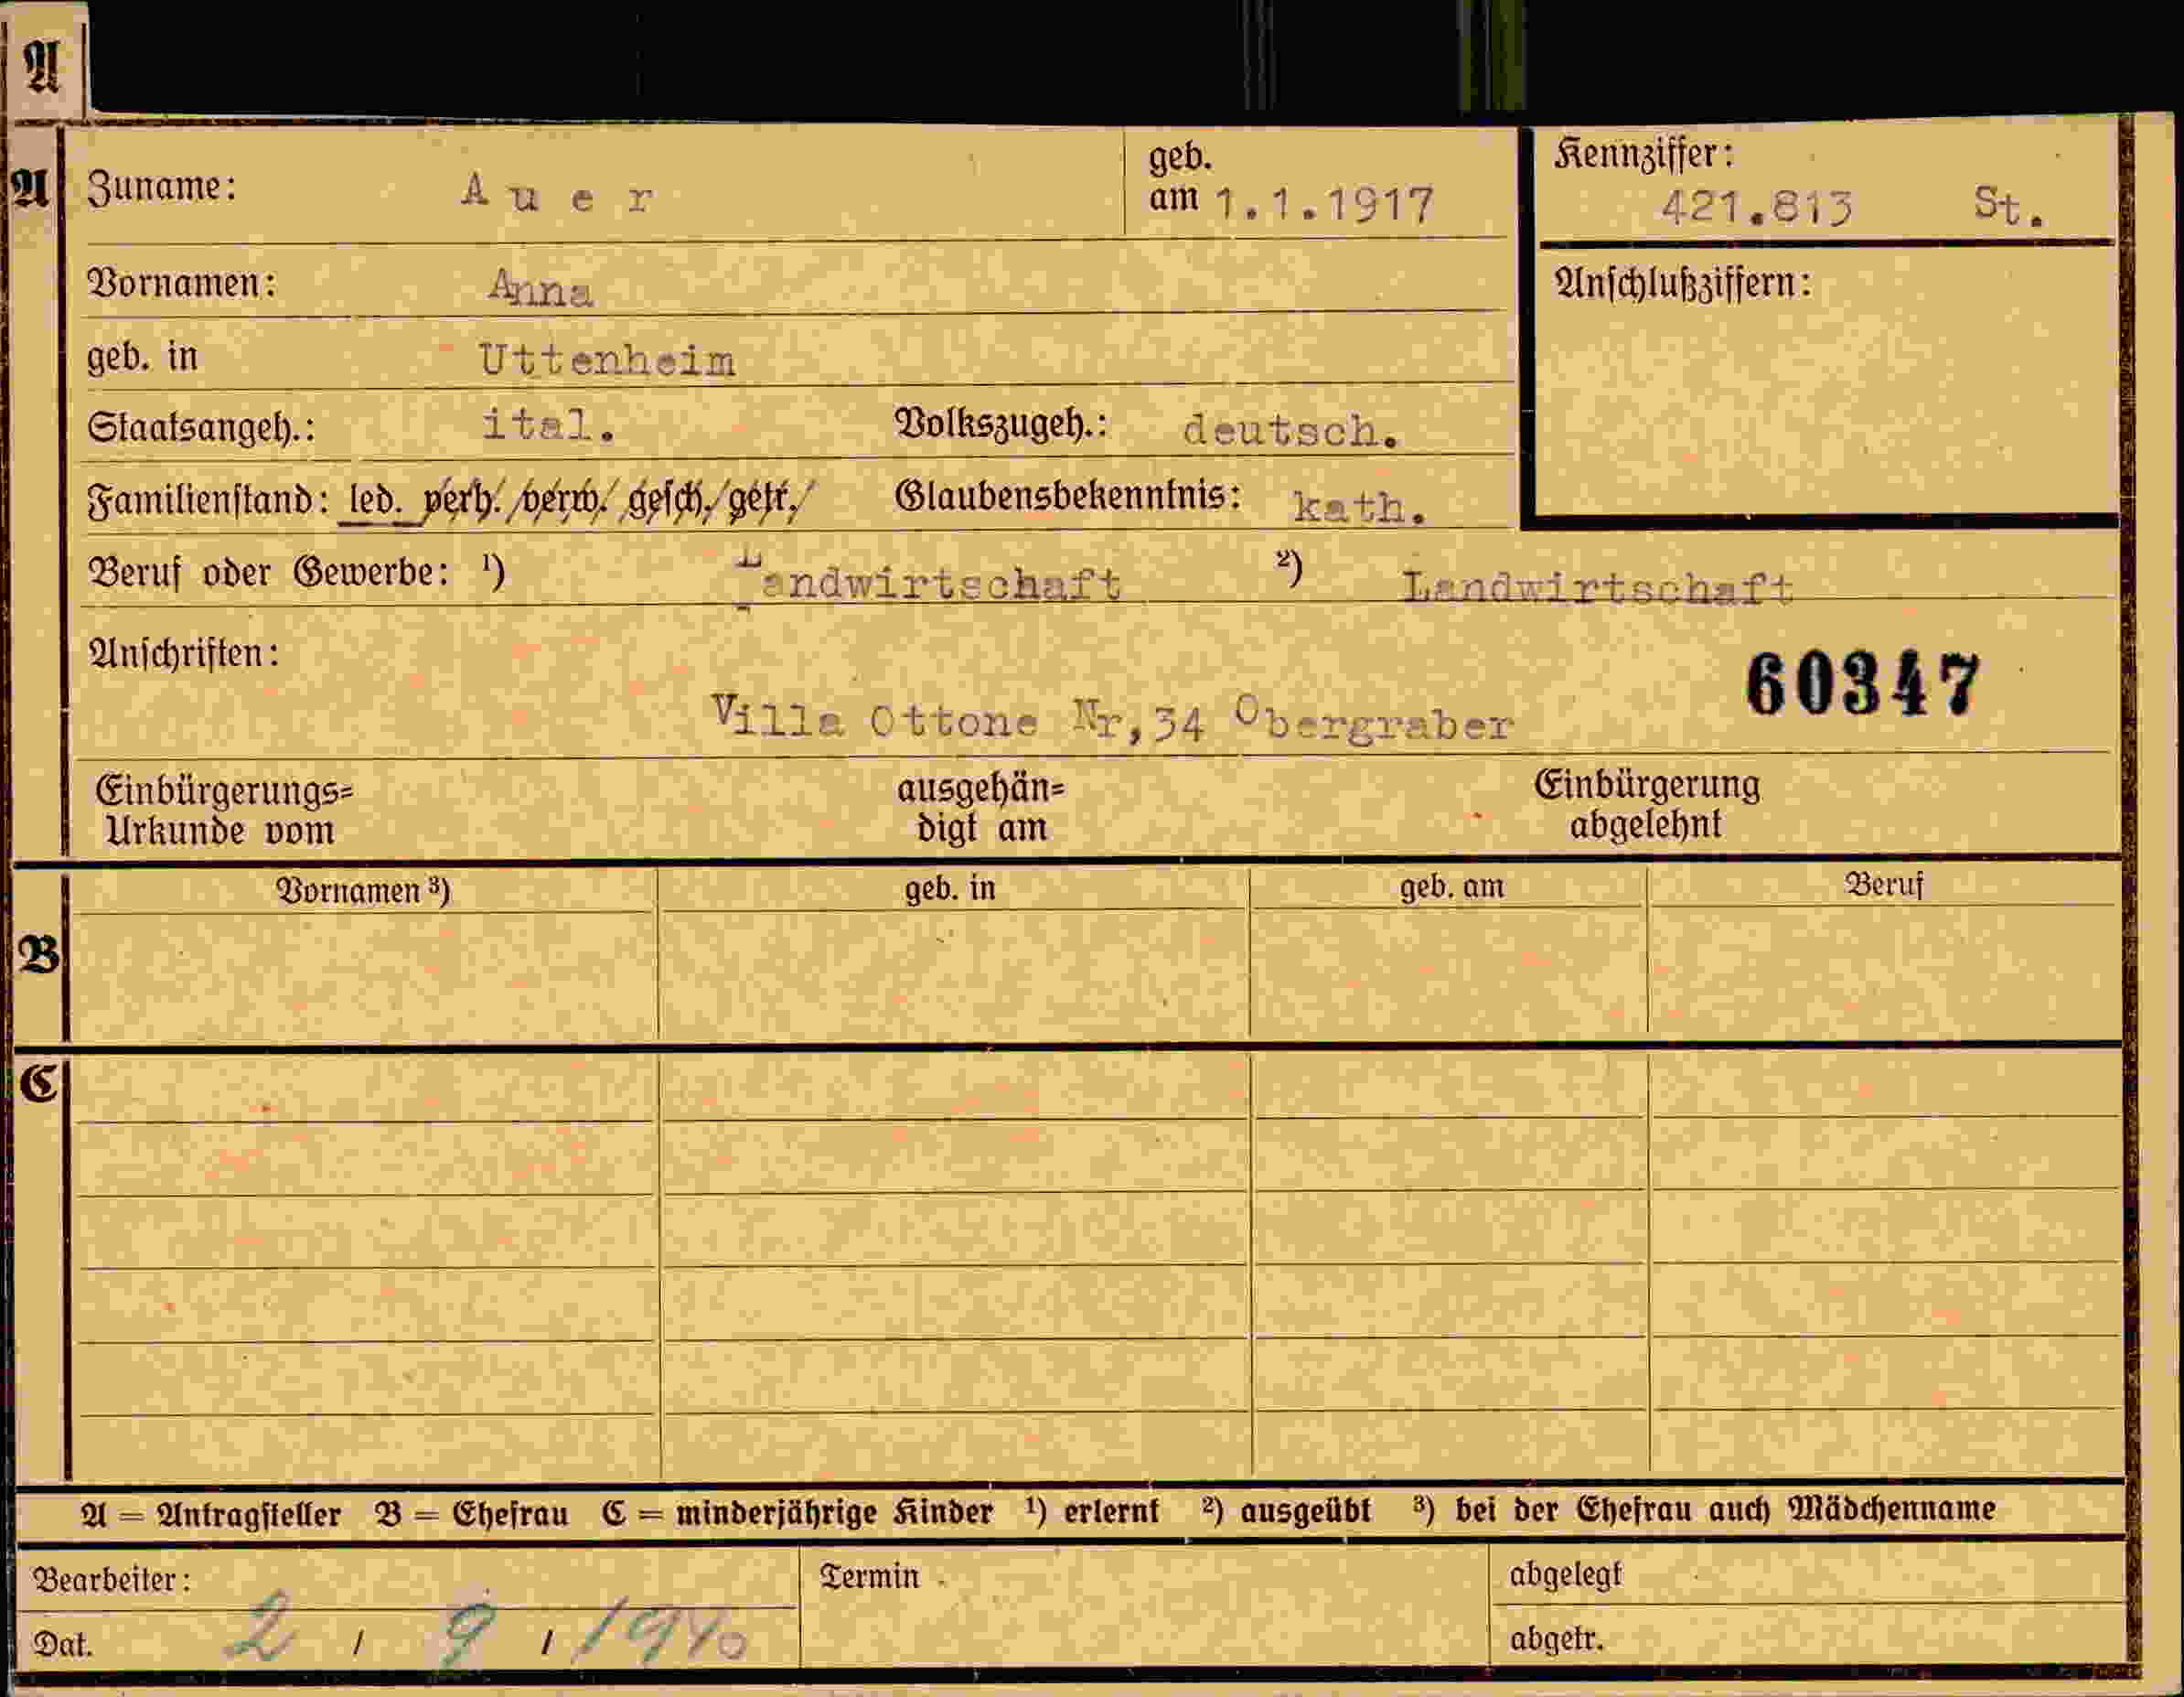 A
A
Zuname: Auer geb. am 1.1.1917 Kennziffer: 421.813 St.
Vornamen: Anna Anschlußziffern:
geb. in Uttenheim
Staatsangeh.: ital. Volkszugeh.: deutsch.
Familienstand: led. verh./verw./gesch./getr./ Glaubensbekenntnis: kath.
Beruf oder Gewerbe: ¹) Landwirtschaft ²) Landwirtschaft
Anschriften:
60347
Villa Ottone Nr,34 Obergraber
Einbürgerungs= ausgehän= Einbürgerung
Urkunde vom digt am abgelehnt
Vornamen ³) geb. in geb. am Beruf
B
C
A = Antragsteller B = Ehefrau C = minderjährige Kinder ¹) erlernt ²) ausgeübt ³) bei der Ehefrau auch Mädchenname
Bearbeiter: Termin abgelegt
Dat. 2 / 9 / 1940 abgetr.